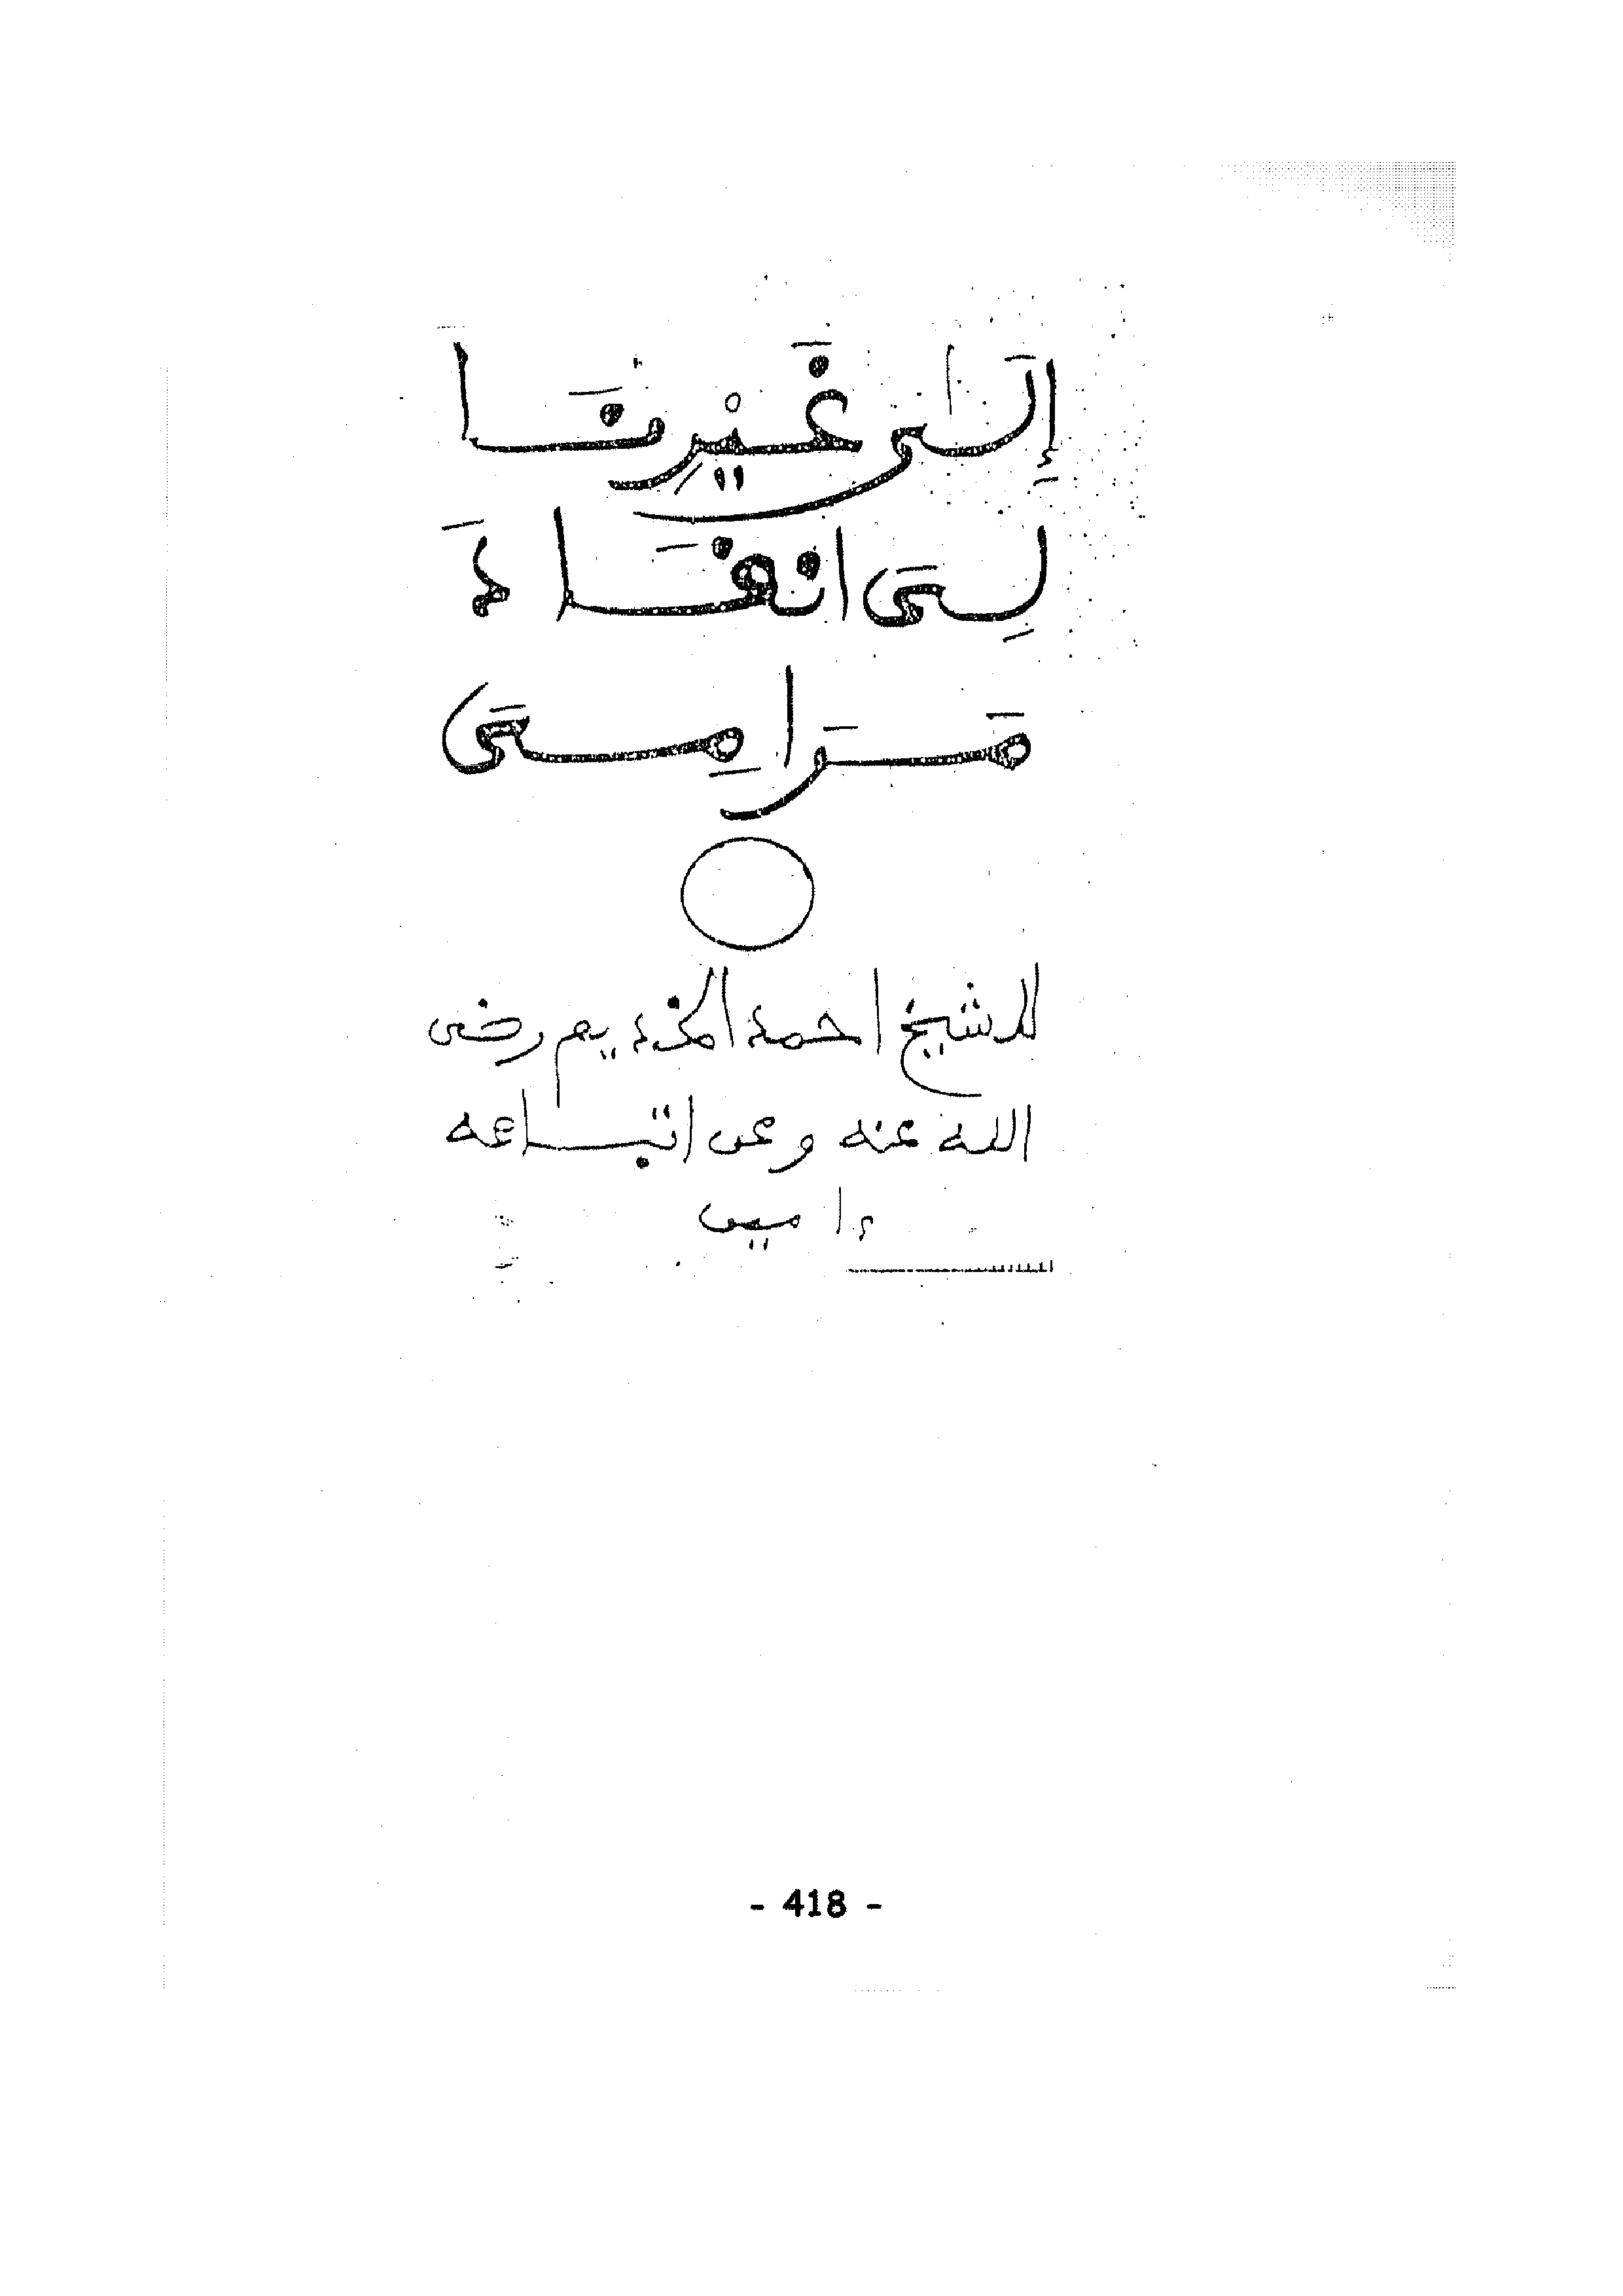 إِلَىٰ غَيْرِنَا
لِىَ انفَادَ
مَرَامِىَ
للشيخ احمد الخديم رضى
الله عنه وعن اتباعه
ءامين
- 418 -